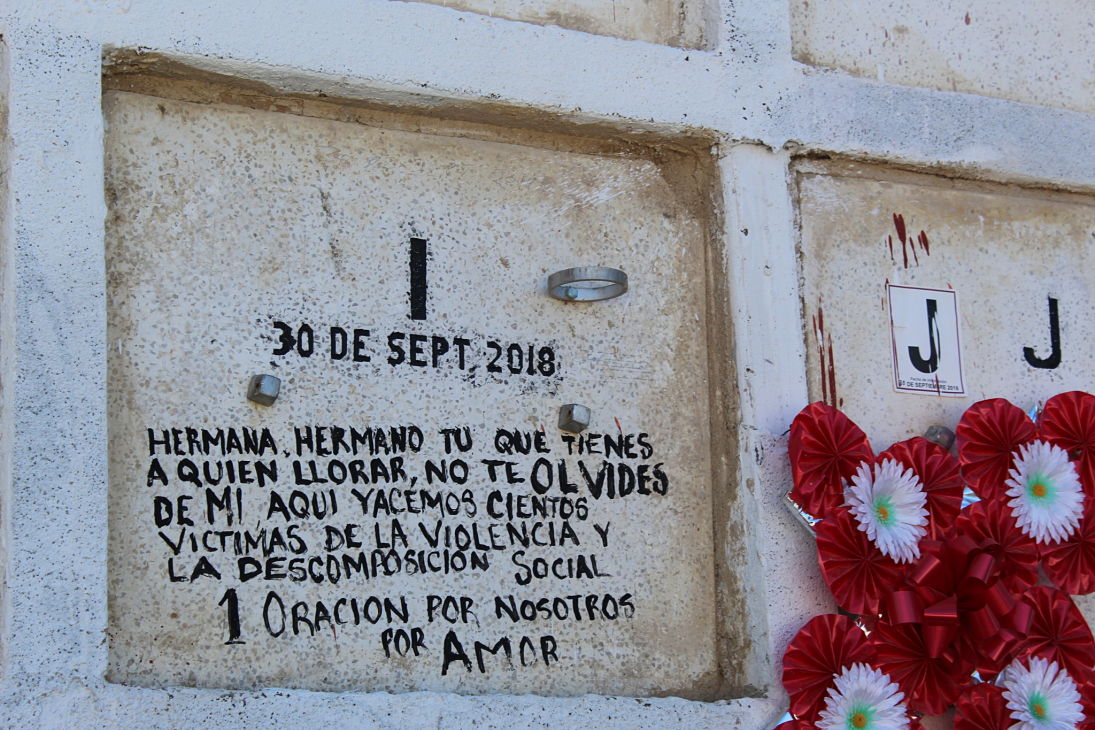 I
30 DE SEPT, 2018
HERMANA, HERMANO TU QUE TIENES
A QUIEN LLORAR, NO TE OLVIDES
DE MI, AQUI YACEMOS CIENTOS
VICTIMAS DE LA VIOLENCIA Y
LA DESCOMPOSICION SOCIAL
1 ORACION POR NOSOTROS
POR AMOR
J
DE SEPTIEMBRE 2018
J